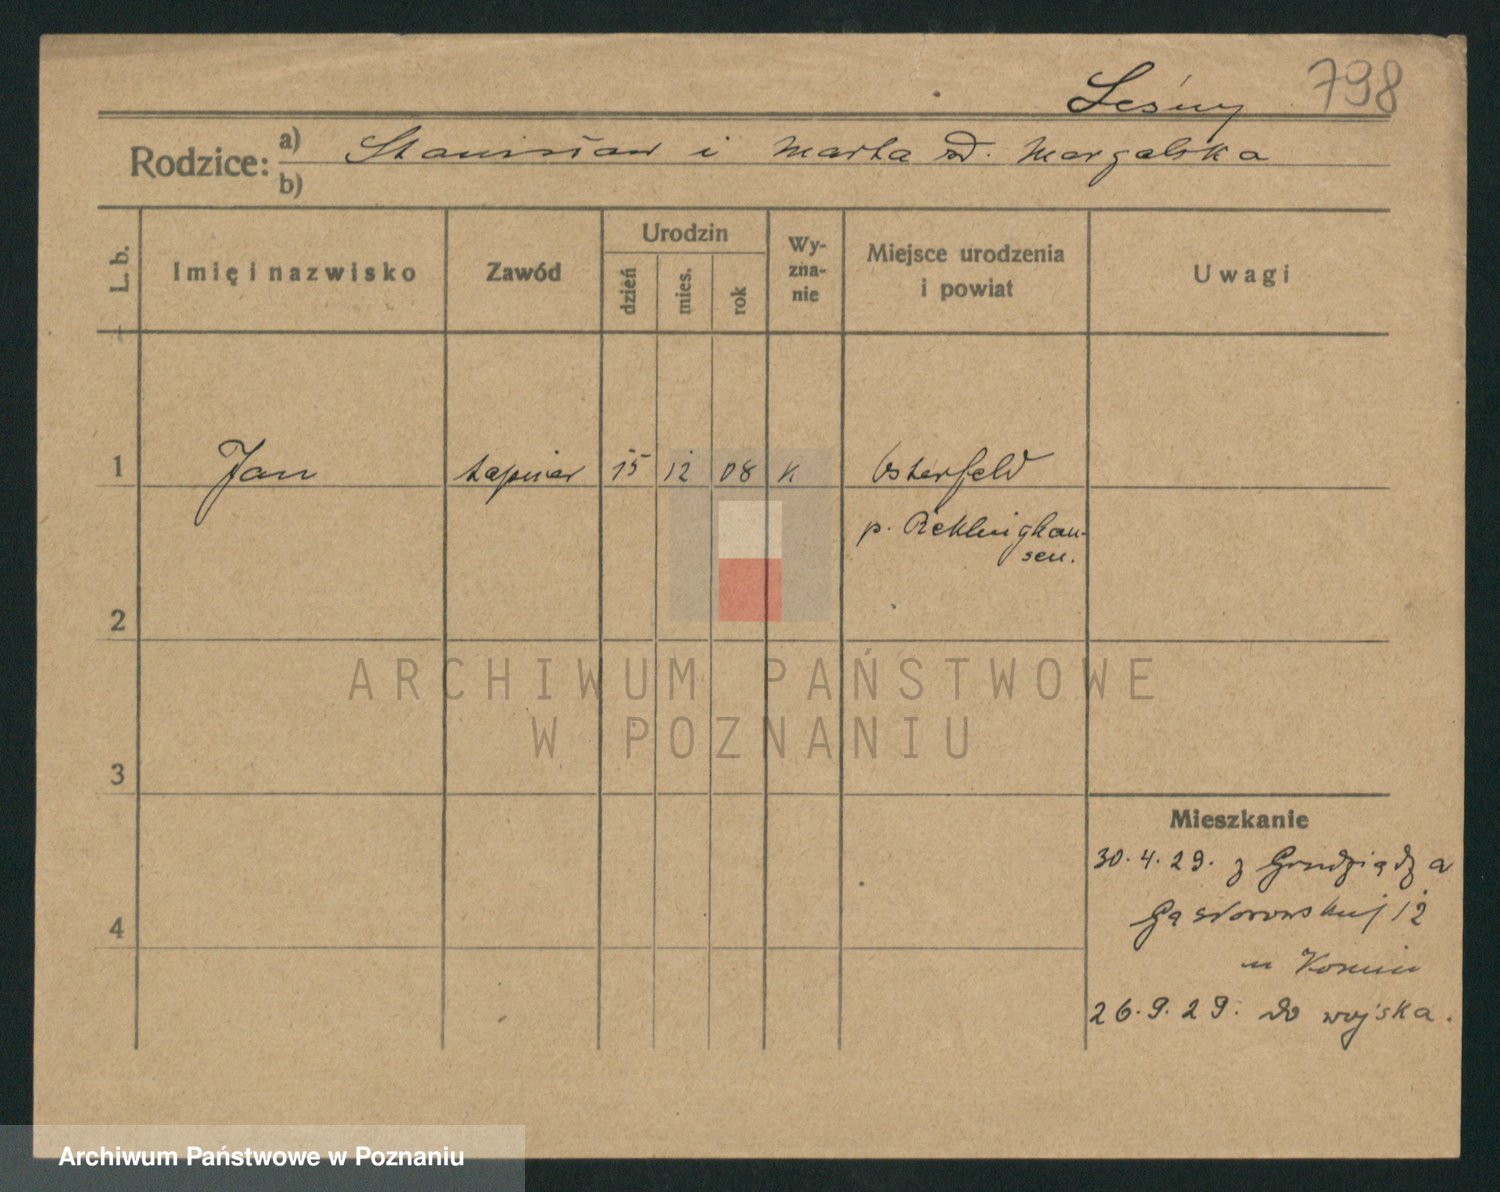 Leśny 798
Rodzice: a) Stanisław i Marta zd. Margalska
b)
L. b. Imię i nazwisko Zawód Urodzin dzień mies. rok Wy-zna-nie Miejsce urodzenia i powiat Uwagi
1 Jan tapicer 15 12 08 K Osterfeld
p. Reklinghau-
sen.
2
ARCHIWUM PAŃSTWOWE
W POZNANIU
3
Mieszkanie
30.4.29. z Grudziądza
Gąsiorowskiej 12
u
4
26.9.29. do wojska.
Archiwum Państwowe w Poznaniu